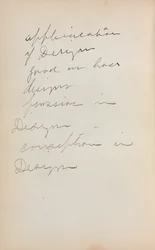 application
of Design
good in
design
in
Design -
conception in
Design